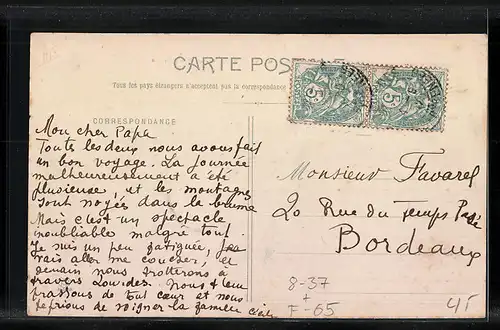 CARTE POSTALE
Tous les pays étrangers n'acceptent pas la correspondance
CORRESPONDANCE
Mon cher Papa
Toutes les deux nous avons fait
un bon voyage. La journée
malheureusement a été
plusieuse, et les montagnes
sont noyés dans la brume
Mais c'est un spectacle
inoubliable malgré tout.
Je suis un peu fatiguée,
vais aller me coucher, et
demain nous trotterons à
travers Lourdes. Nous t'em
brassons de tout cœur et nous
te prions de soigner la famille
Monsieur Favarel
20 Rue du Temps Passé
Bordeaux
5
5
8-37
+
F-65
45